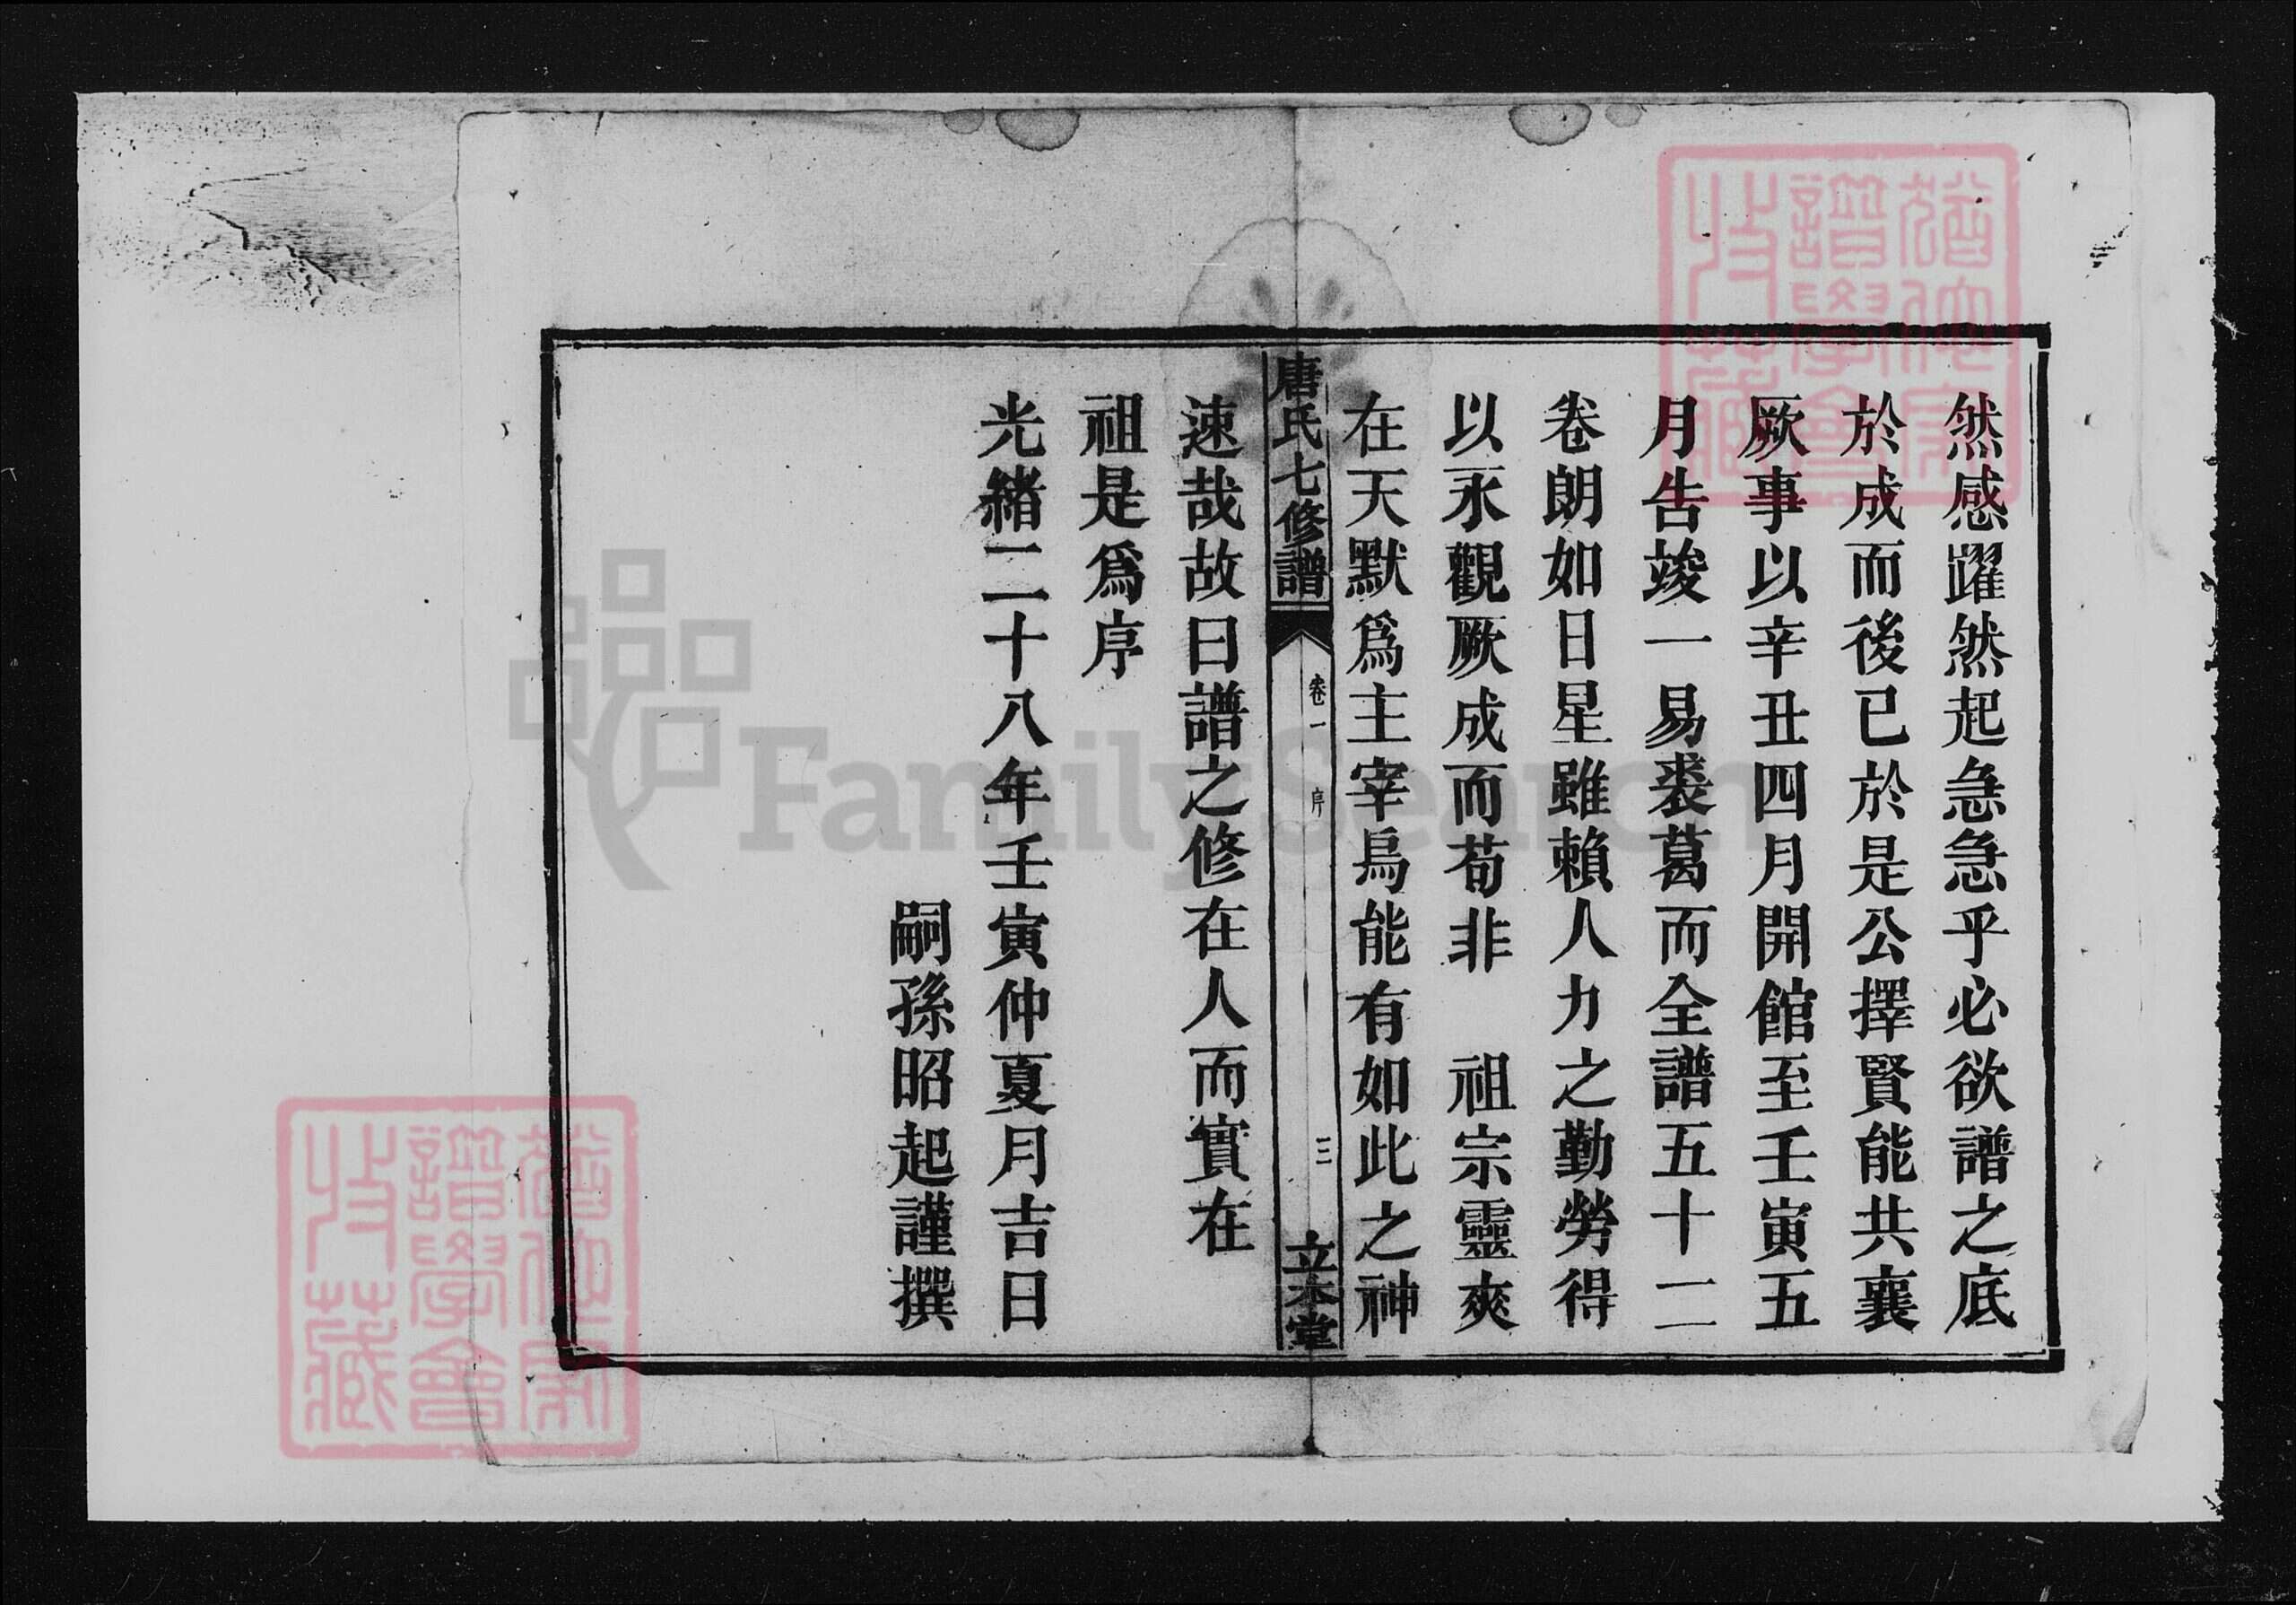 然感躍然起急急乎必欲譜之底
於成而後已於是公擇賢能共襄
厥事以辛丑四月開館至壬寅五
月告竣一易裘葛而全譜五十二
卷朗如日星雖賴人力之勤勞得
以永觀厥成而荀非　祖宗靈爽
在天默爲主宰烏能有如此之神
唐氏七修譜
卷一
序
三
立本堂
速哉故曰譜之修在人而實在
祖是爲序
光緒二十八年壬寅仲夏月吉日
嗣孫昭起謹撰
FamilySearch
譜學會
收藏
譜學會
收藏